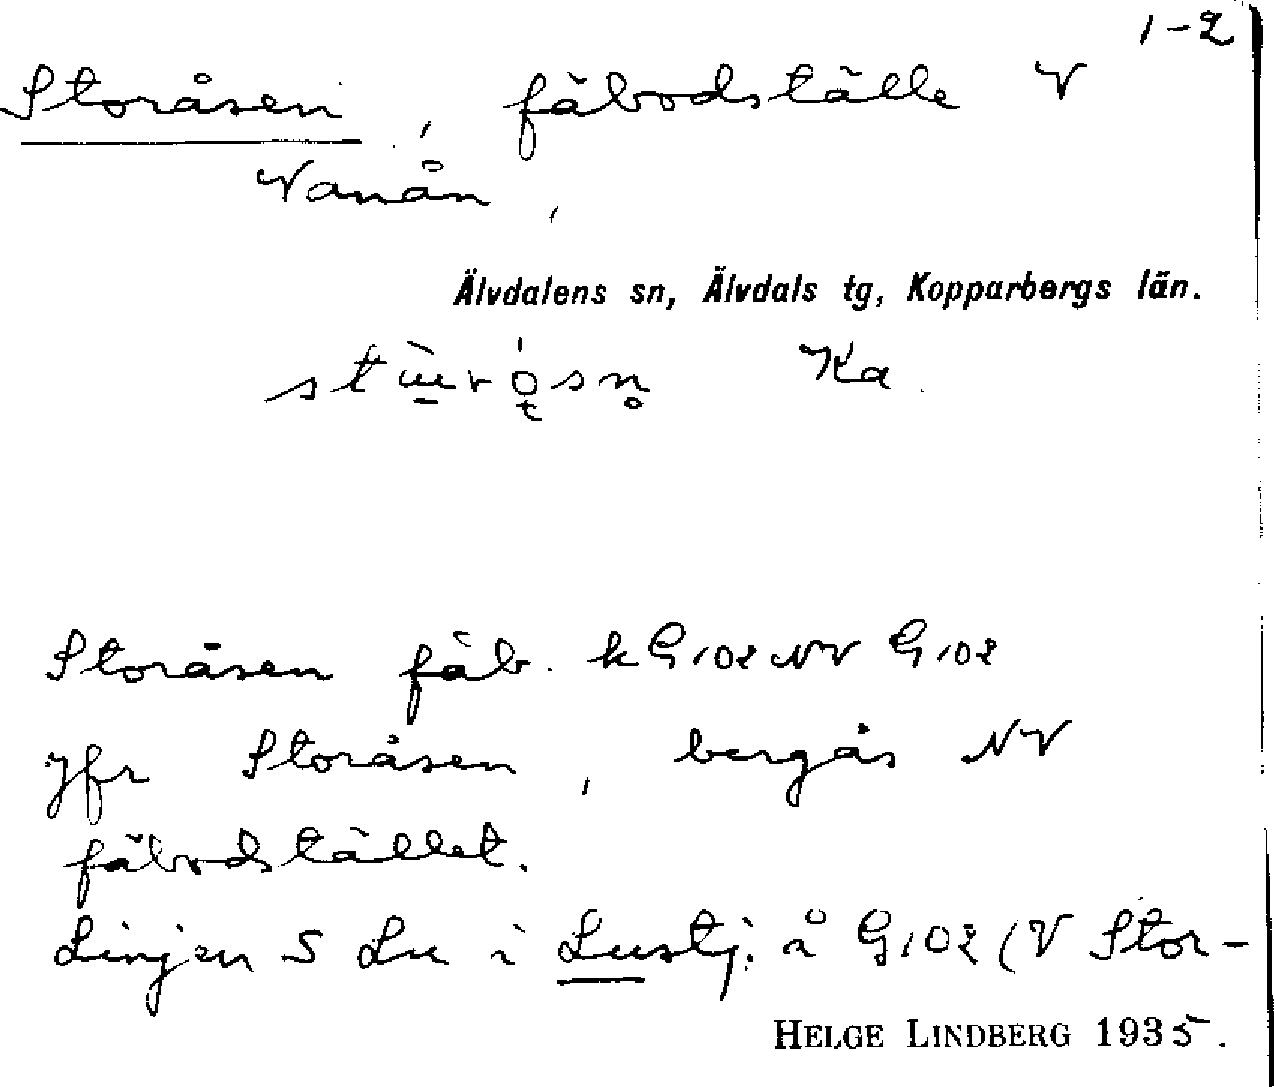 1-2
Storåsen, fäbodställe V
Vanån,
Älvdalens sn, Älvdals tg, Kopparbergs län.
Ka
Storåsen fäb. k G102 NV G102
Jfr Storåsen, bergås NV
fäbodstället.
Linjen S Lu i Lustj. å G102 (V Stor-
HELGE LINDBERG 1935.